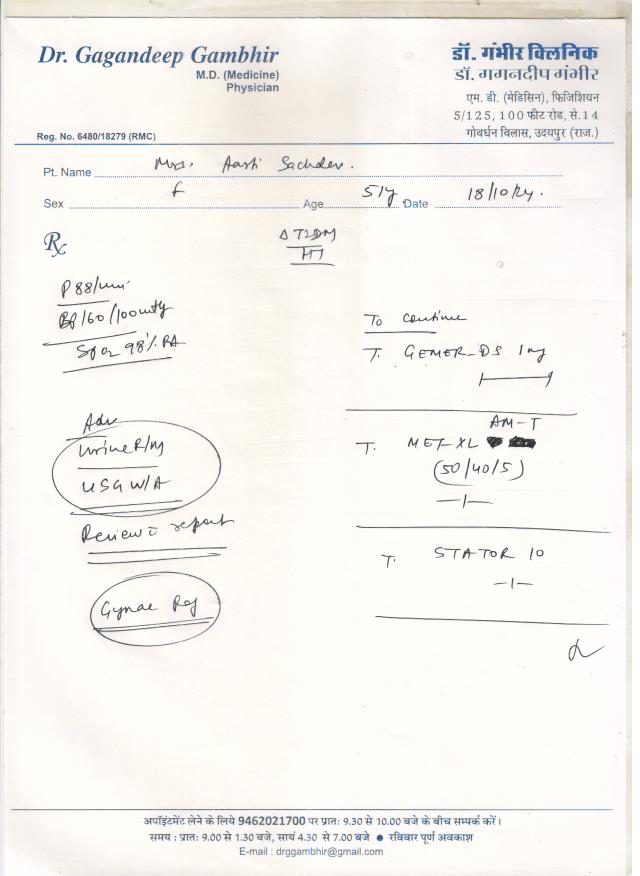 Dr. Gagandeep Gambhir
M.D. (Medicine)
Physician
Reg. No. 6480/18279 (RMC)
डॉ. गंभीर क्लिनिक
डॉ. गगनदीप गंभीर
एम. डी. (मेडिसिन), फिजिशियन
5/125, 100 फीट रोड, से.14
गोवर्धन विलास, उदयपुर (राज.)
Pt. Name Mrs. Aarti Sachdev.
Sex F Age 51y Date 18/10/24.
Rx
Δ T2DM
HT
P 88/min
BP 160/100 mmHg
SpO2 98% RA
Adv
Urine R/M
USG W/A
Review c report
Gynae Ref
To continue
T. GEMER-DS 1mg
AM-T
T. MET-XL
(50/40/5)
-1-
T. STATOR 10
-1-
अपॉइंटमेंट लेने के लिये 9462021700 पर प्रातः 9.30 से 10.00 बजे के बीच सम्पर्क करें।
समय : प्रातः 9.00 से 1.30 बजे, सायं 4.30 से 7.00 बजे ● रविवार पूर्ण अवकाश
E-mail : drggambhir@gmail.com